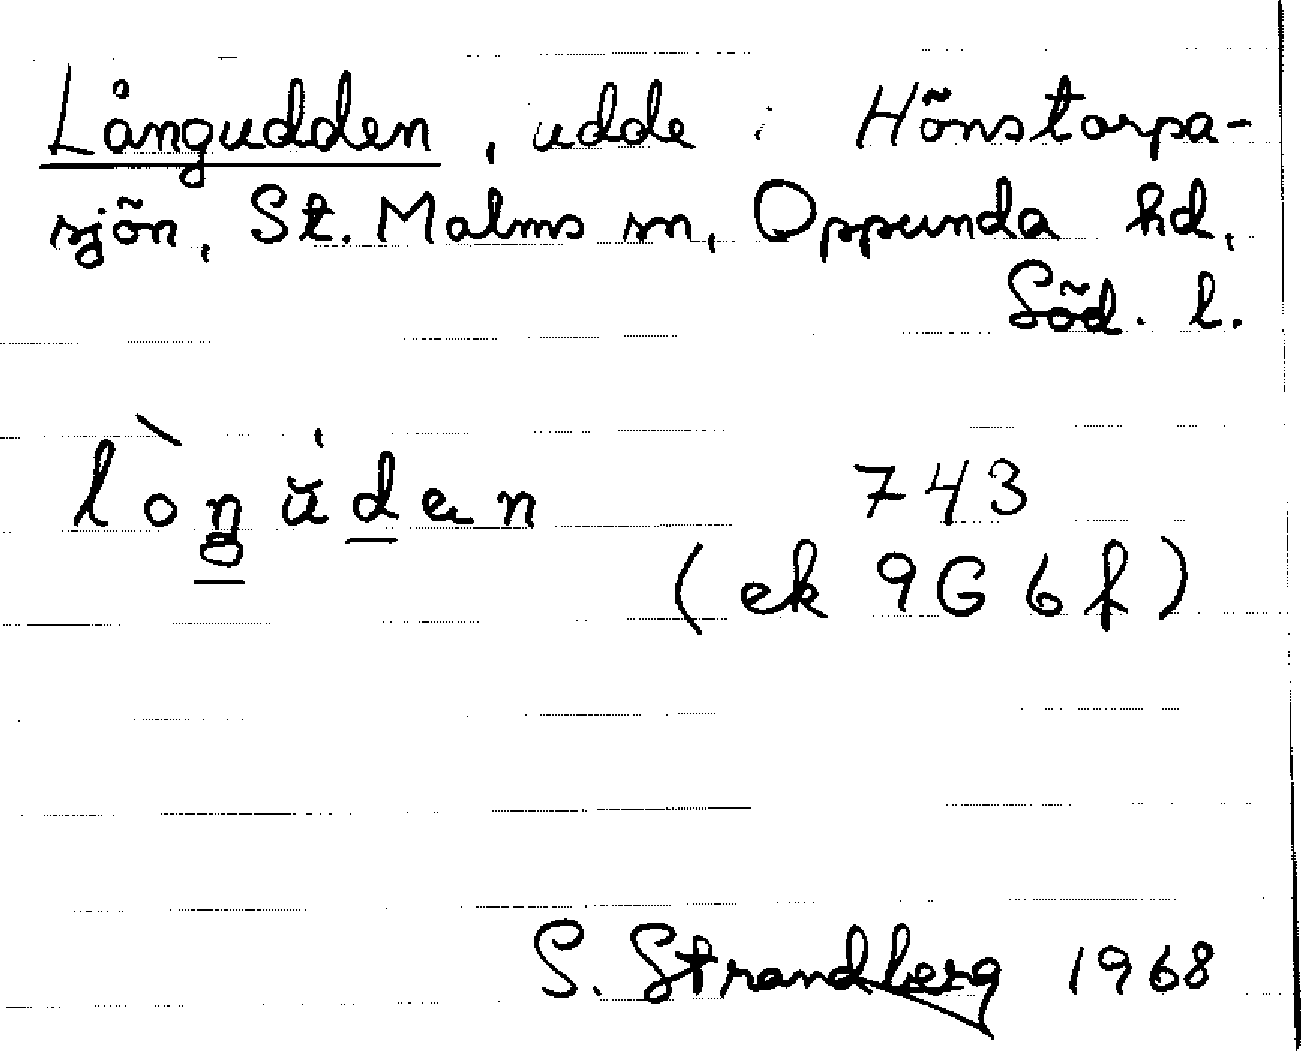 Långudden, udde i Hönstorpa-
sjön, St. Malms sn, Oppunda hd,
Söd. l.
lòŋŭ̍den 743
(ek 9G 6f)
S. Strandberg 1968